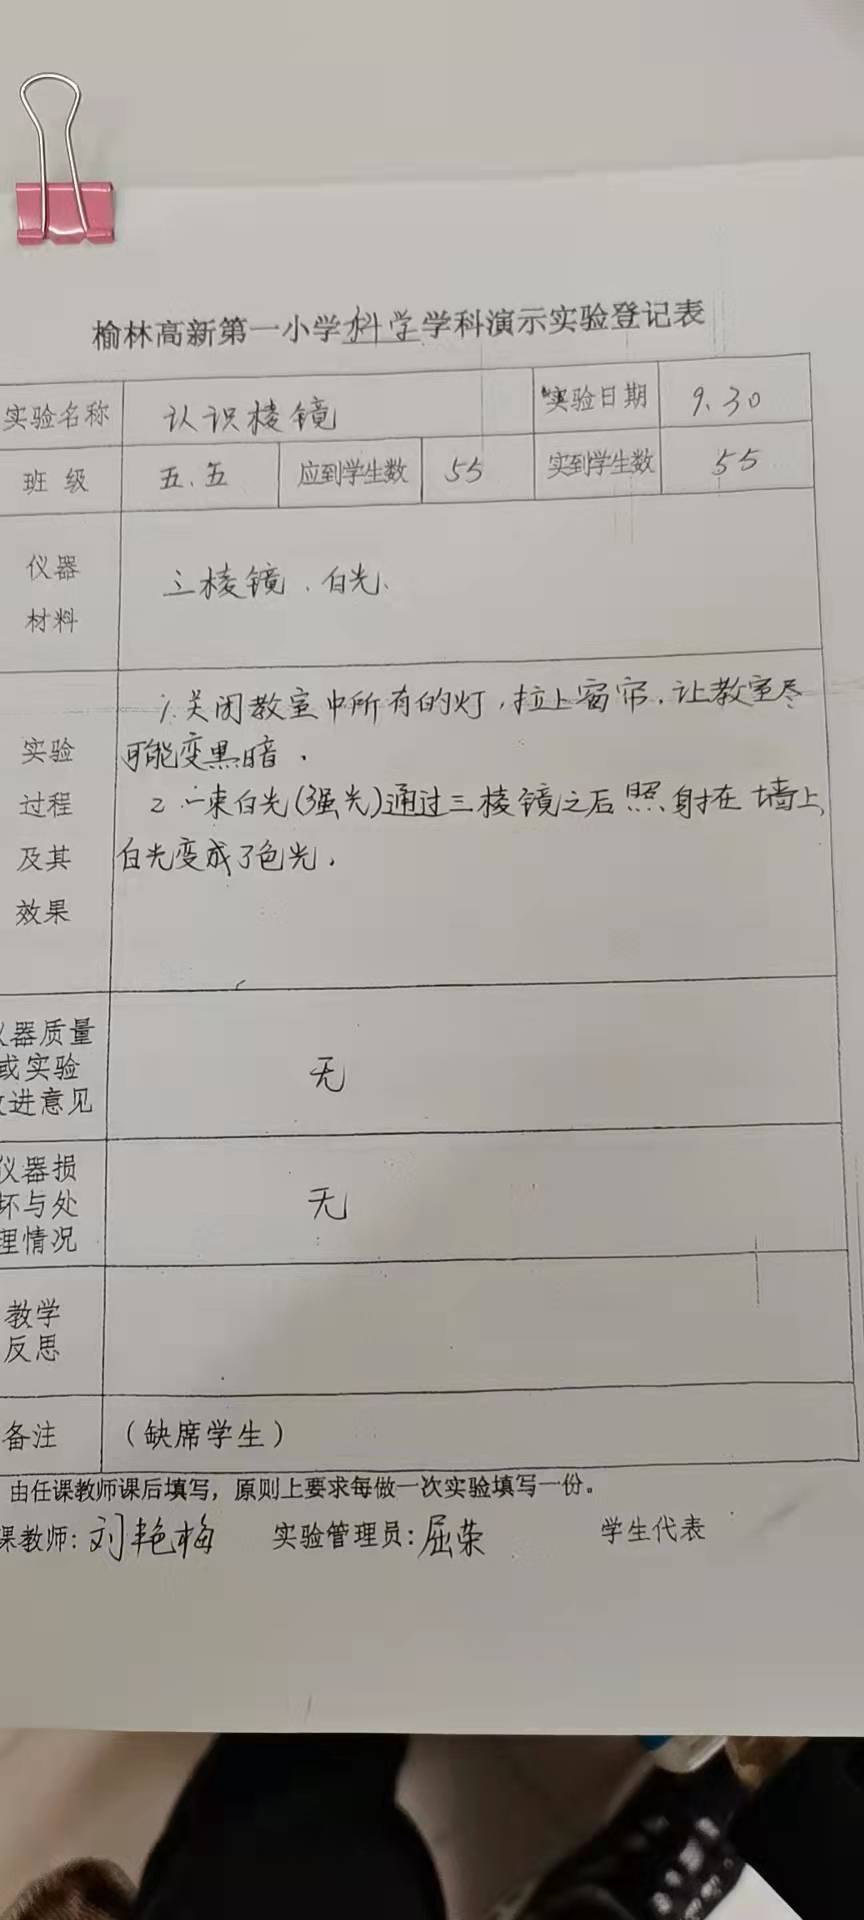 榆林高新第一小学科学学科演示实验登记表
实验名称 认识棱镜 实验日期 9.30
班 级 五.五 应到学生数 55 实到学生数 55
仪器
材料
三棱镜、白光、
1.关闭教室中所有的灯,拉上窗帘,让教室尽
可能变黑暗.
2.一束白光(强光)通过三棱镜之后照射在墙上,
白光变成了色光.
实验
过程
及其
效果
仪器质量
或实验
改进意见
无
仪器损
坏与处
理情况
无
教学
反思
备注 (缺席学生)
由任课教师课后填写,原则上要求每做一次实验填写一份。
课教师:刘艳梅 实验管理员:屈荣 学生代表